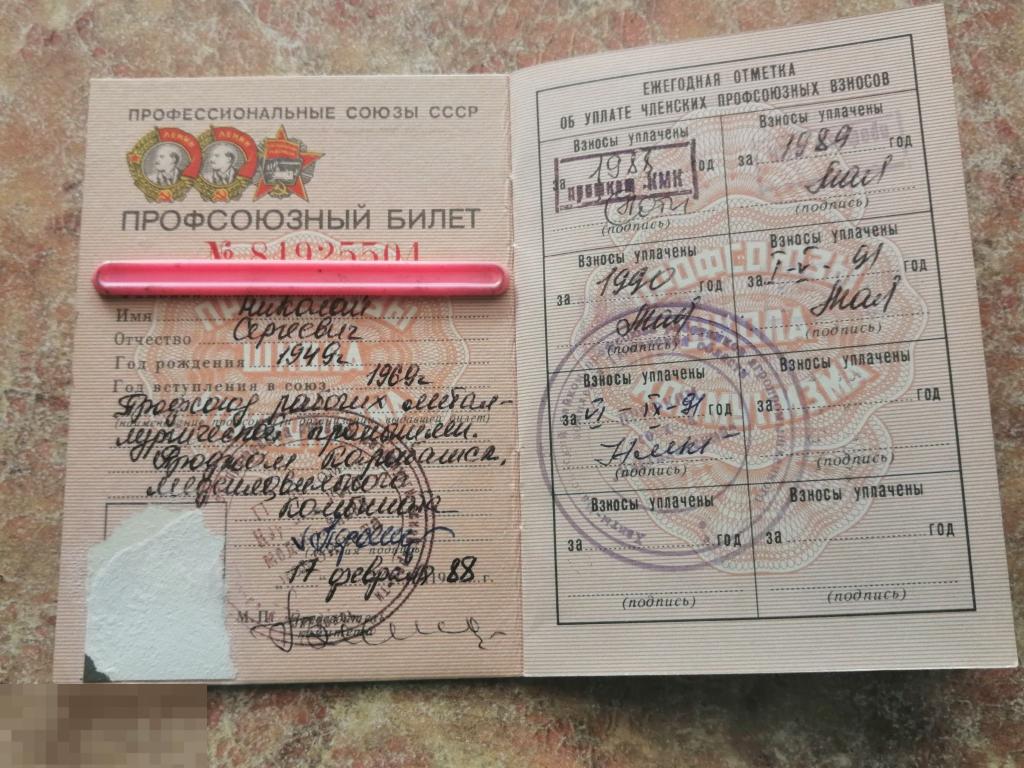 ПРОФЕССИОНАЛЬНЫЕ СОЮЗЫ СССР
ЛЕНИН
ЛЕНИН
ПРОФСОЮЗНЫЙ БИЛЕТ
№ 84925504
Имя Николай
Отчество Сергеевич
Год рождения 1949г
Год вступления в союз 1969г
Профсоюз рабочих метал-
лургической промышлен.
Профком Карабашск.
медеплавильного
комбината
подпись
17 февраля 1988 г.
М.П. Председатель
комитета
ЕЖЕГОДНАЯ ОТМЕТКА
ОБ УПЛАТЕ ЧЛЕНСКИХ ПРОФСОЮЗНЫХ ВЗНОСОВ
Взносы уплачены
за 1988 год
профком КМК
(подпись)
Взносы уплачены
за 1989 год
(подпись)
Взносы уплачены
за 1990 год
(подпись)
Взносы уплачены
за I-V 91 год
(подпись)
Взносы уплачены
за VI - IX-91 год
(подпись)
Взносы уплачены
за год
(подпись)
Взносы уплачены
за год
(подпись)
Взносы уплачены
за год
(подпись)